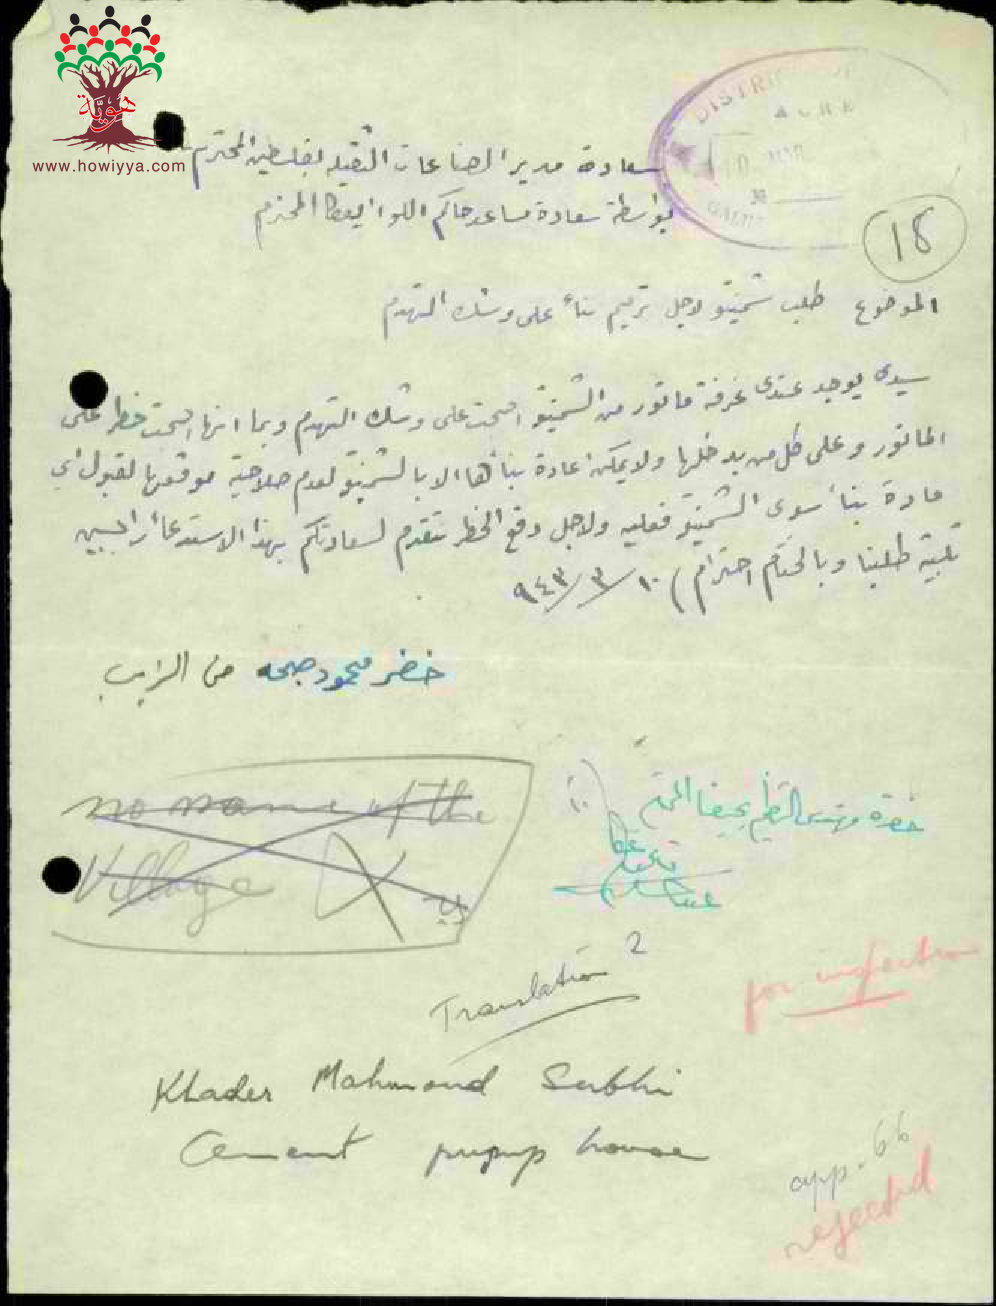 هويّة
www.howiyya.com
DISTRICT
ACRE
10 MAR
GALIL
سعادة مدير الصناعات الثقيلة بفلسطين المحترم
بواسطة سعادة مساعد حاكم اللواء بعكا المحترم
18
الموضوع طلب شمينتو لاجل ترميم بناء على وشك التهدم
سيدي يوجد عندي غرفة ماتور من الشمينتو اصبحت على وشك التهدم وبما انها اصبحت خطر على
الماتور وعلى كل من يدخلها ولا يمكن اعادة بنائها الا بالشمينتو لعدم صلاحية موقعها لقبول اي
مادة بناء سوى الشمينتو فعليه ولاجل دفع الخطر نتقدم لسعادتكم بهذا الاستدعاء راجيين
تلبية طلبنا وبالختام احترام) ١٠/٣/٩٤٣
خضر محمود صبحه من الزيب
no name of the
Village
حضرة بحيفا المحترم
Translation 2
for inspection
Khader Mahmoud Subhi
Cement pump house
app. 66
rejected